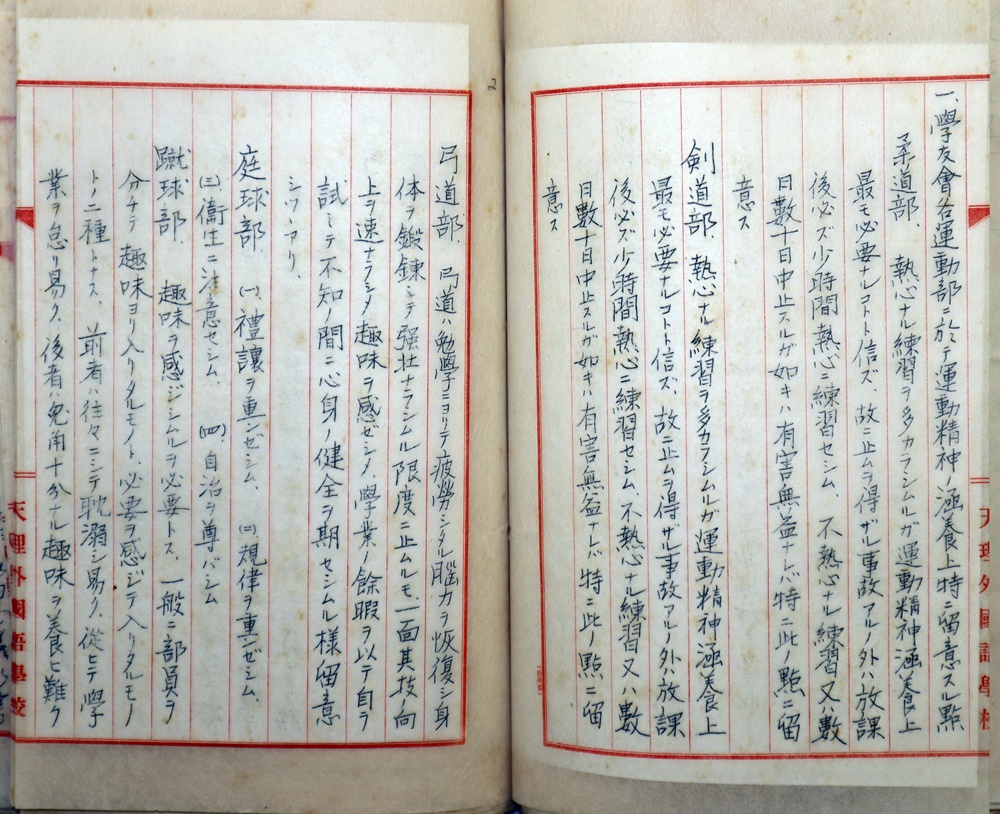 一、學友會各運動部ニ於テ運動精神ノ涵養上特ニ留意スル點
柔道部、熱心ナル練習ヲ多カラシムルガ運動精神涵養上
最モ必要ナルコトト信ズ、故ニ止ムヲ得ザル事故アルノ外ハ放課
後必ズ少時間熱心ニ練習セシム、不熱心ナル練習又ハ數
日數十日中止スルガ如キハ有害無益ナレバ特ニ此ノ點ニ留
意ス
劍道部、熱心ナル練習ヲ多カラシムルガ運動精神涵養上
最モ必要ナルコトト信ズ、故ニ止ムヲ得ザル事故アルノ外放課
後必ズ少時間熱心ニ練習セシム、不熱心ナル練習又ハ數
日數十日中止スルガ如キハ有害無益ナレバ特ニ此ノ點ニ留
意ス
天理外國語學校
2
弓道部、弓道ハ勉學ニヨリテ疲勞シタル腦力ヲ恢復シ身
体ヲ鍛鍊シテ强壮ナラシムル限度ニ止ムルモ、一面其技ノ向
上ヲ速ナラシメ趣味ヲ感ゼシメ、學業ノ餘暇ヲ以テ自ラ
試ミテ不知ノ間ニ心身ノ健全ヲ期セシムル様留意
シツヽアリ、
庭球部、(一)、禮讓ヲ重ンゼシム、(二)、規律ヲ重ンゼシム、
(三)、衞生ニ注意セシム、(四)、自治ヲ尊バシム
蹴球部、趣味ヲ感ジシムルヲ必要トス、一般ニ部員ヲ
分チテ趣味ヨリ入リタルモノト、必要ヲ感ジテ入リタルモノ
トノ二種トナス、前者ハ往々ニシテ耽溺シ易ク、從ヒテ學
業ヲ怠リ易ク、後者ハ兎角十分ナル趣味ヲ養ヒ難ク
天理外國語學校